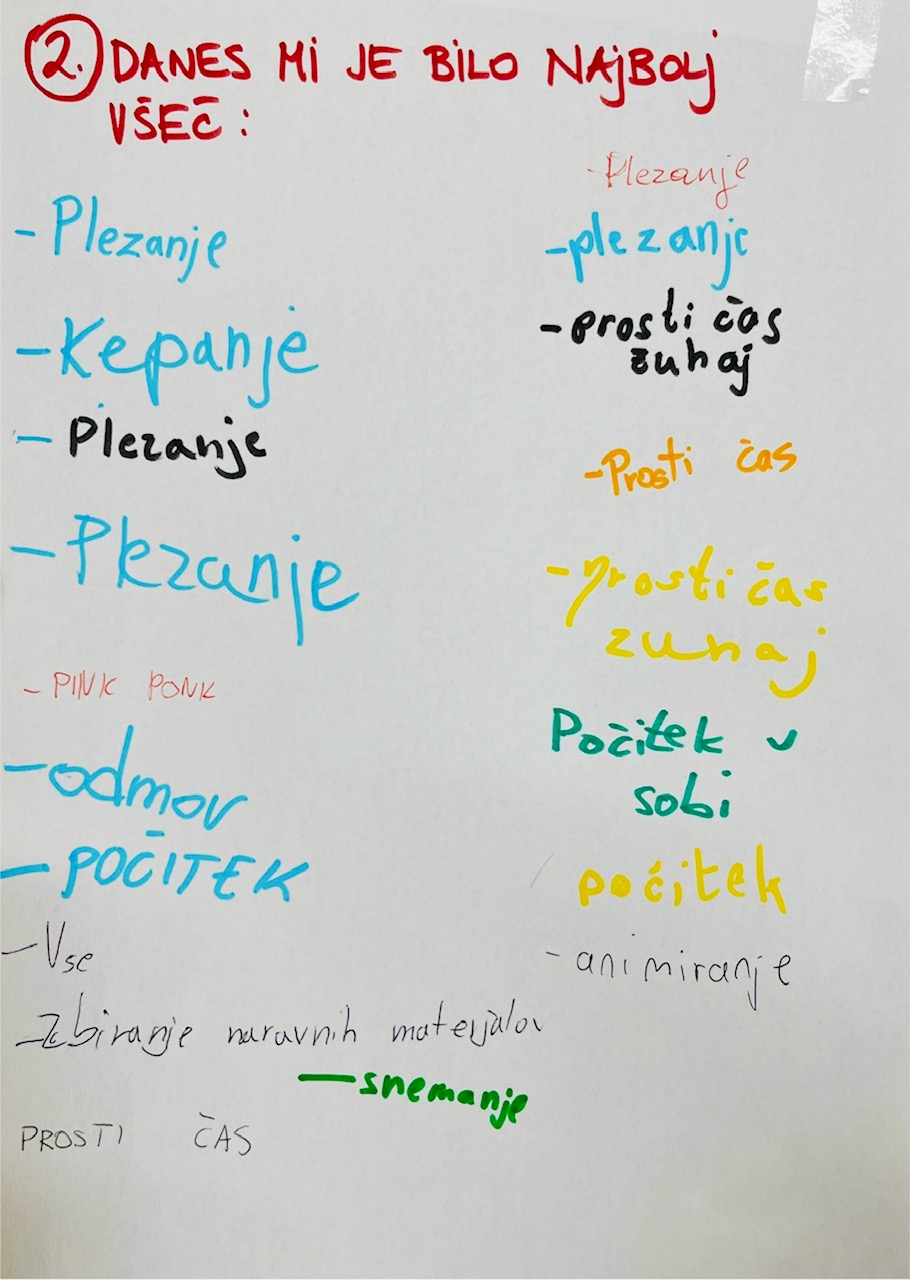 2. DANES MI JE BILO NAJBOLJ
VŠEČ:
- Plezanje
- Kepanje
- Plezanje
- Plezanje
- PINK PONK
- odmov
- POČITEK
- Vse
- Zbiranje naravnih materjalov
- snemanje
PROSTI ČAS
- Plezanje
- plezanje
- prosti čas
zuhaj
- Prosti čas
- prosti čas
zunaj
Počitek v
sobi
počitek
- animiranje